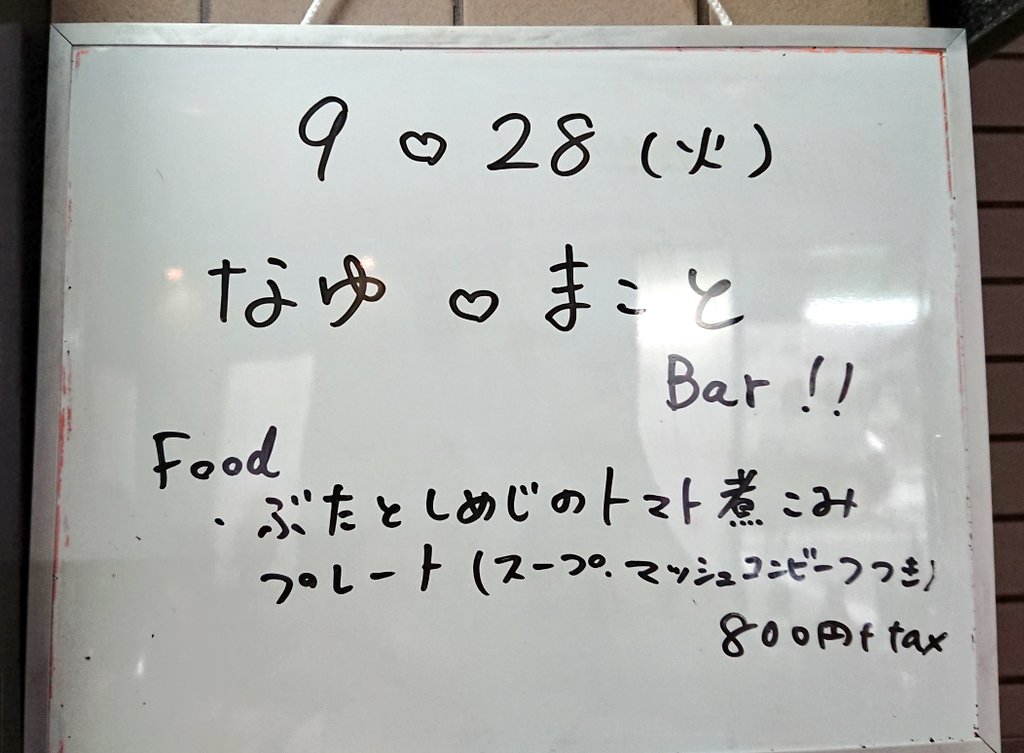 9♡28(火)
なゆ♡まこと
Bar!!
Food
・ぶたとしめじのトマト煮こみ
プレート(スープ、マッシュコンビーフつき)
800円+tax